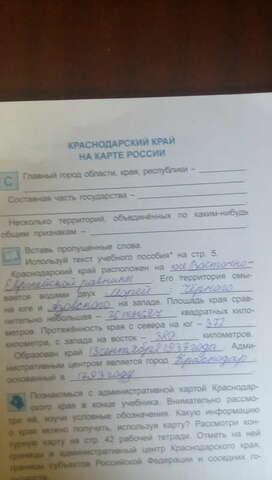 КРАСНОДАРСКИЙ КРАЙ
НА КАРТЕ РОССИИ
С
Главный город области, края, республики –
Составная часть государства –
Несколько территорий, объединённых по каким-нибудь
общим признакам –
Вставь пропущенные слова.
Используй текст учебного пособия* на стр. 5.
Краснодарский край расположен на юге Восточно-
Европейской равнины. Его территория омы-
вается водами двух морей Чёрного
на юге и Азовского на западе. Площадь края срав-
нительно небольшая – 76 тысяч квадратных кило-
метров. Протяжённость края с севера на юг – 372
километра, с запада на восток – 380 километров.
Образован край 13 сентября 1937 года. Адми-
нистративным центром является город Краснодар,
основанный в 1793 году.
Познакомься с административной картой Краснодар-
ского края в конце учебника. Внимательно рассмо-
три её, изучи условные обозначения. Какую информацию
о крае можно получить, используя карту? Рассмотри кон-
турную карту на стр. 42 рабочей тетради. Отметь на ней
границы и административный центр Краснодарского края,
границы субъектов Российской Федерации и соседних го-